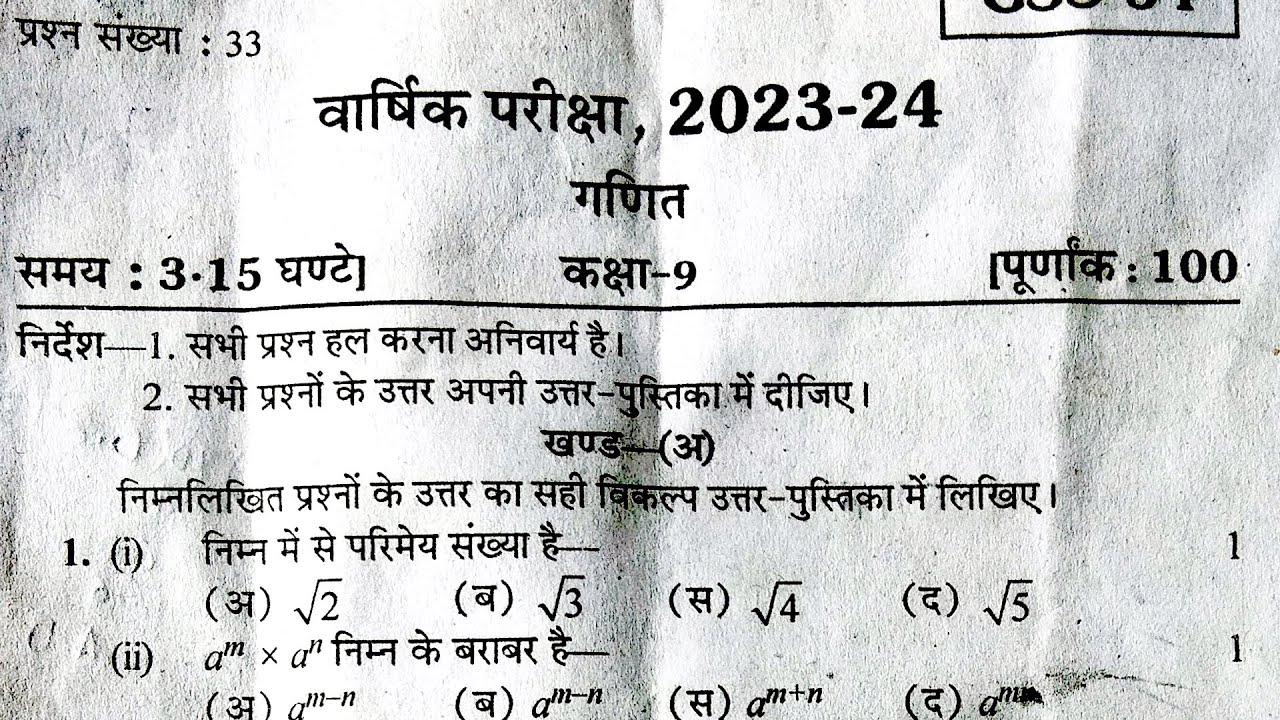 प्रश्न संख्या : 33
वार्षिक परीक्षा, 2023-24
गणित
समय : 3·15 घण्टे] कक्षा-9 [पूर्णांक : 100
निर्देश—1. सभी प्रश्न हल करना अनिवार्य है।
2. सभी प्रश्नों के उत्तर अपनी उत्तर-पुस्तिका में दीजिए।
खण्ड—(अ)
निम्नलिखित प्रश्नों के उत्तर का सही विकल्प उत्तर-पुस्तिका में लिखिए।
1. (i) निम्न में से परिमेय संख्या है— 1
(अ) √2 (ब) √3 (स) √4 (द) √5
(ii) aᵐ × aⁿ निम्न के बराबर है— 1
(अ) aᵐ⁻ⁿ (ब) aᵐ⁻ⁿ (स) aᵐ⁺ⁿ (द)